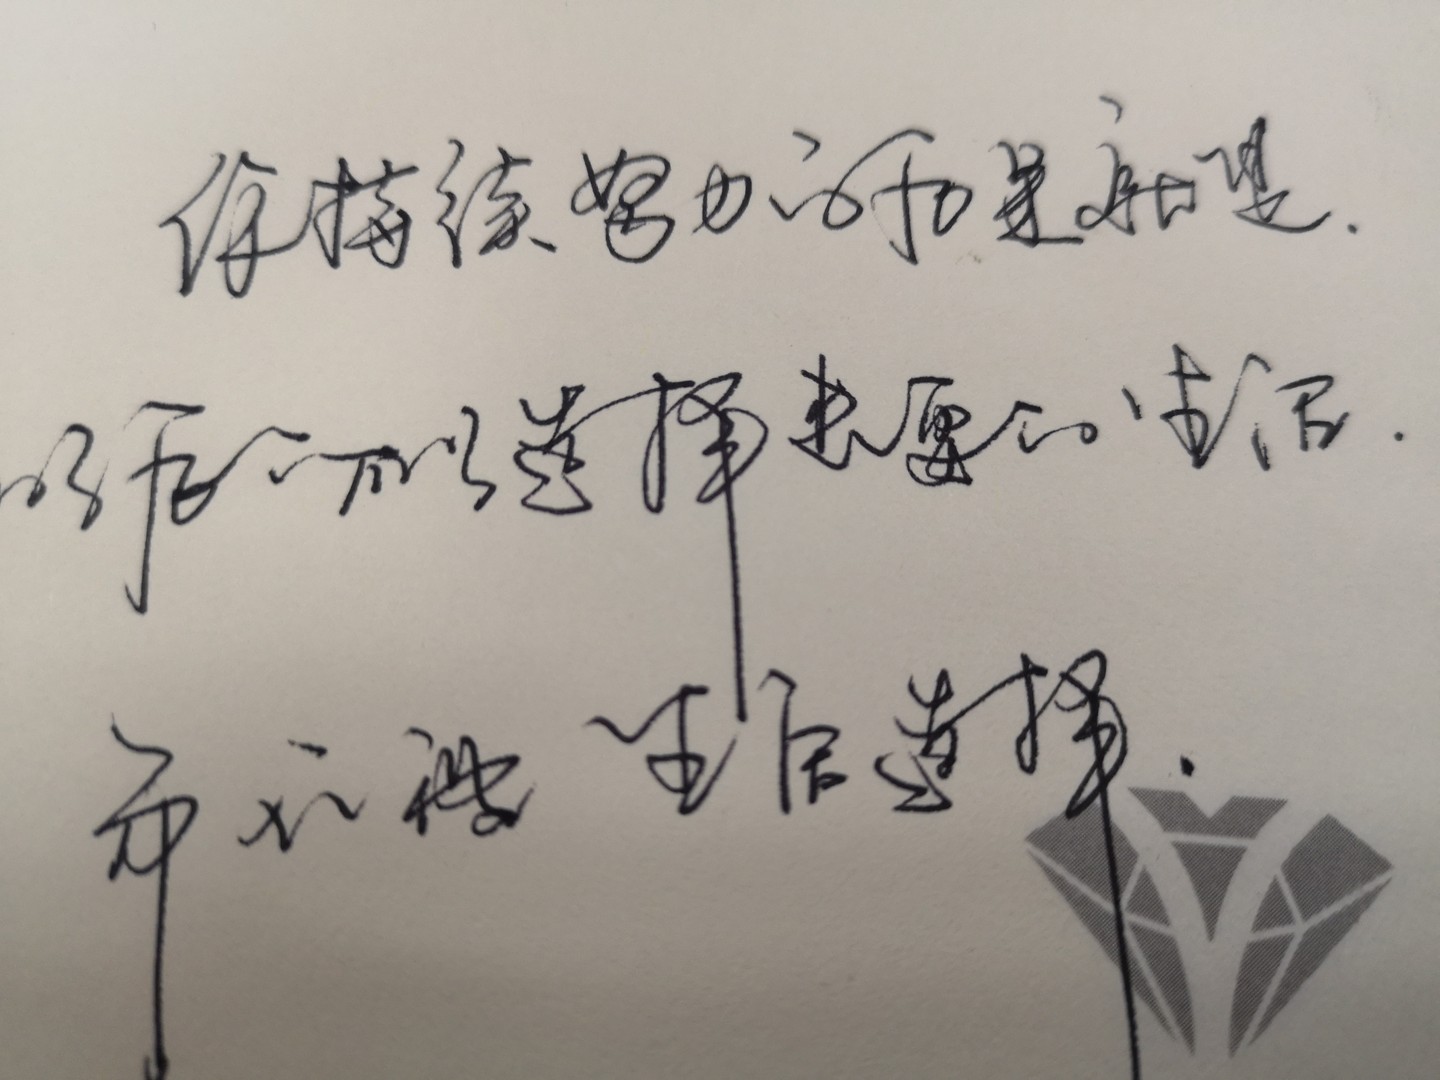 你持续努力的和是意能是.
以后可以选择想要的生活.
而不被生活选择.